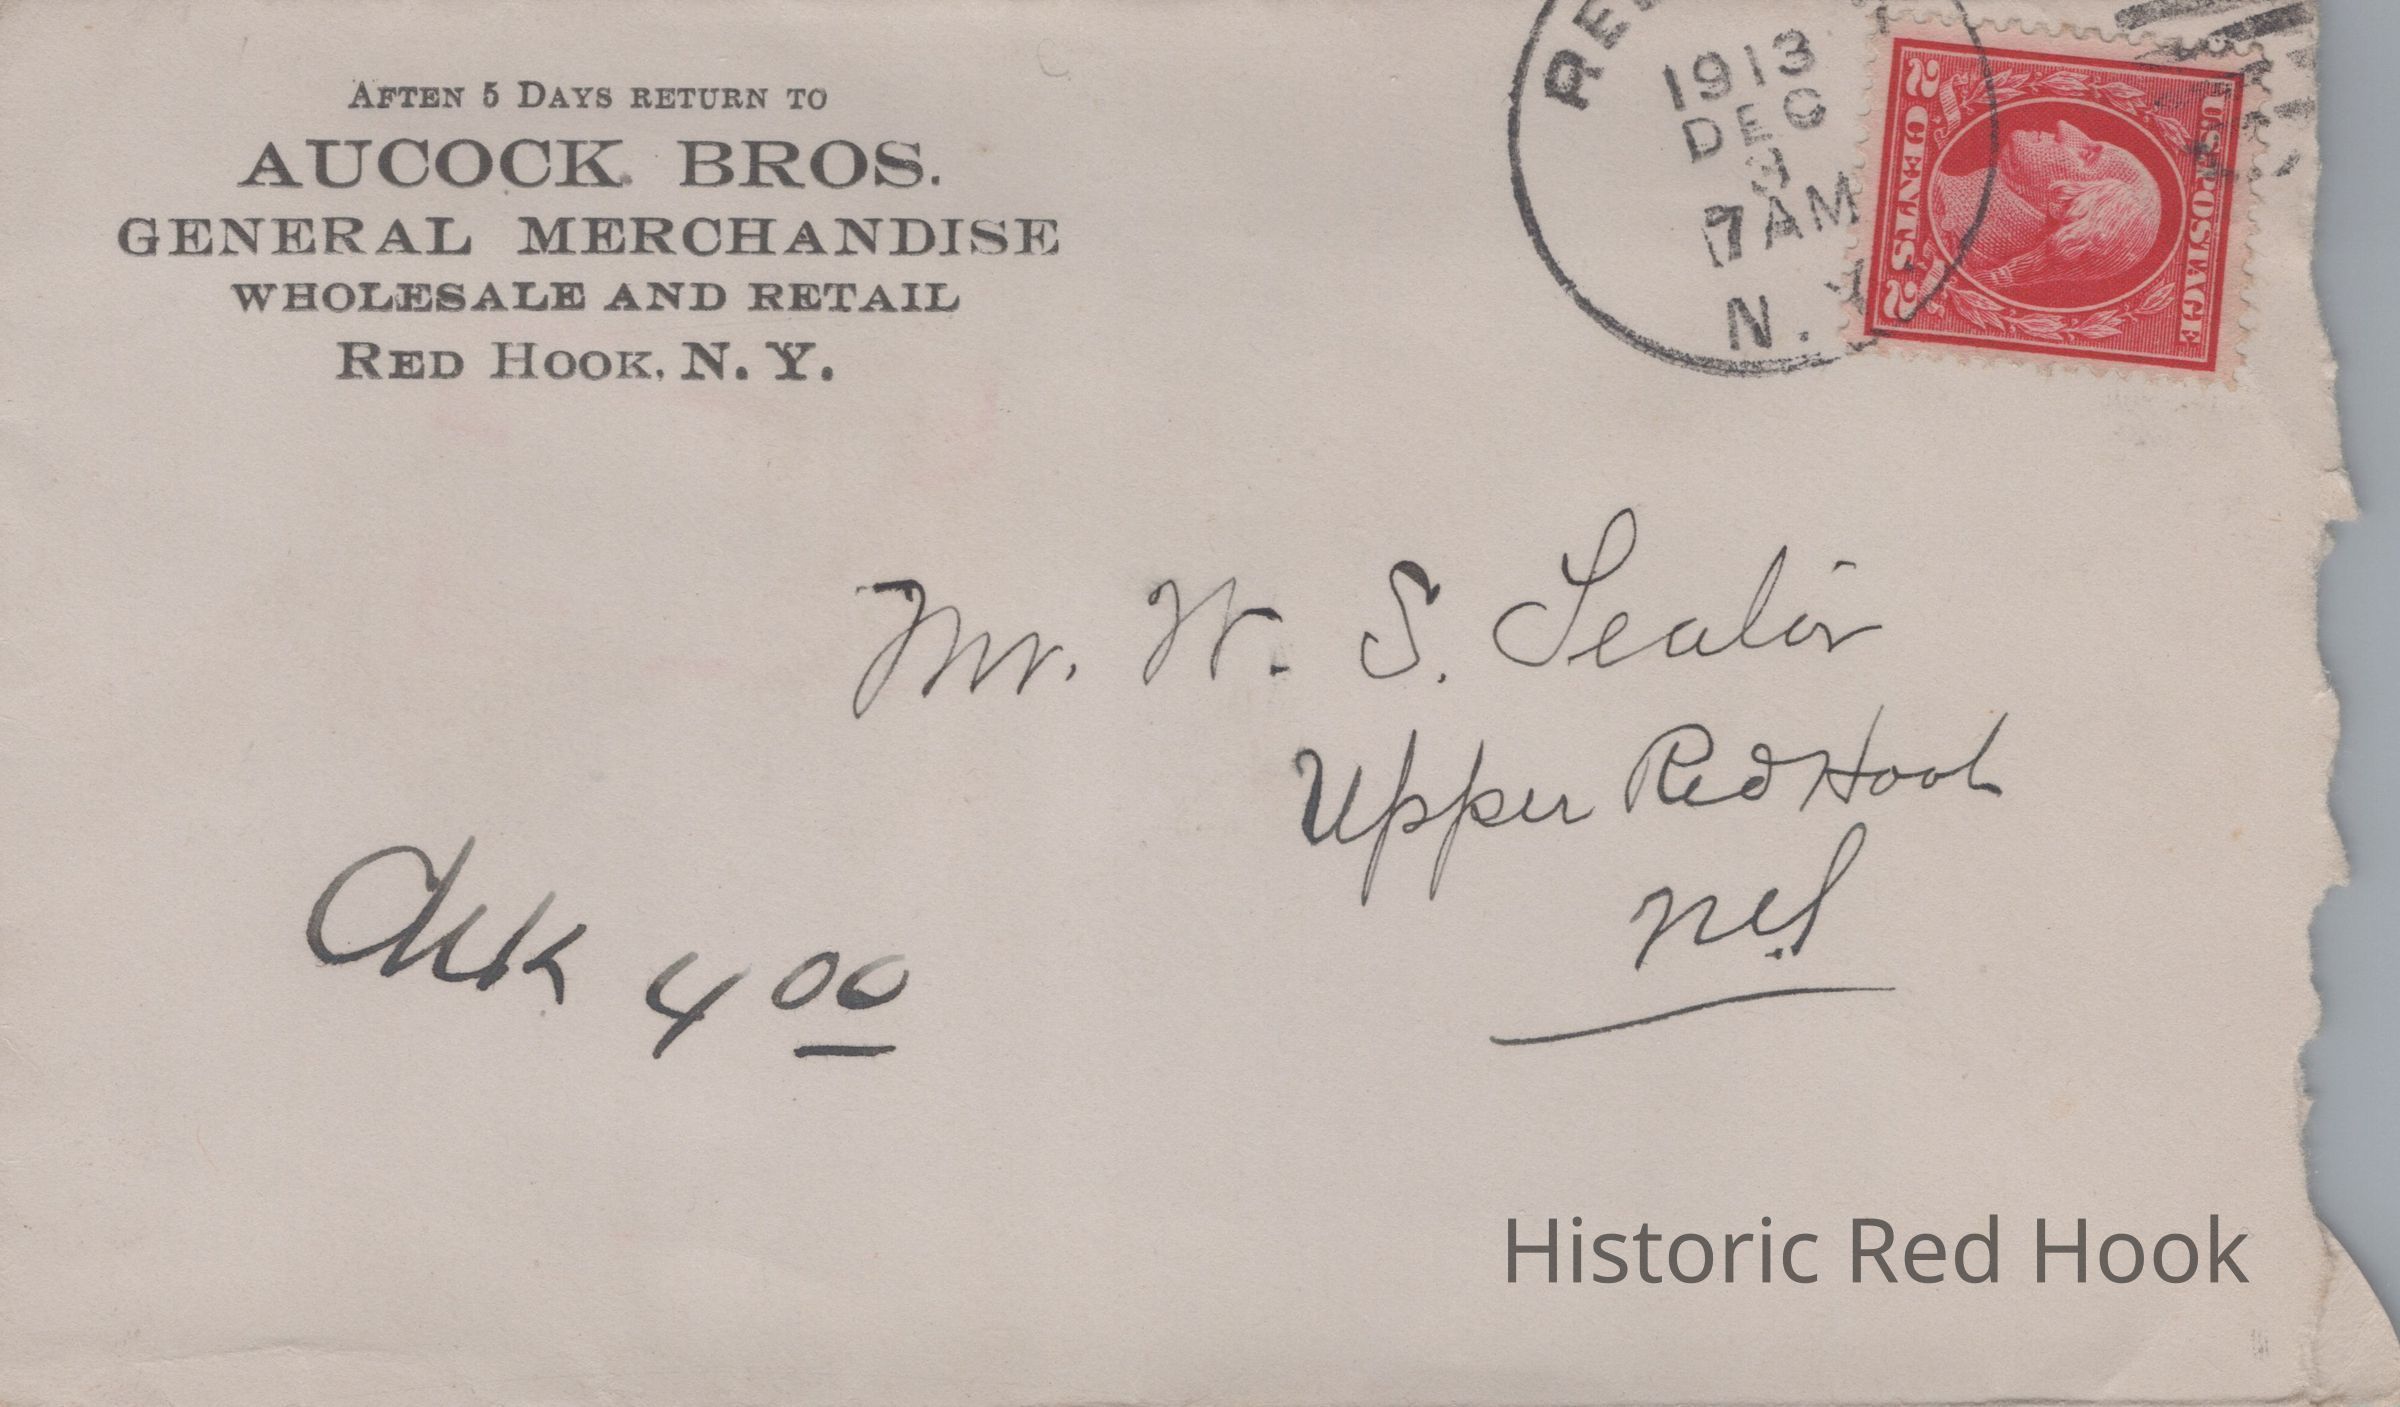 AFTEN 5 DAYS RETURN TO
AUCOCK BROS.
GENERAL MERCHANDISE
WHOLESALE AND RETAIL
RED HOOK, N. Y.
1913
DEC
3
7 AM
N. Y.
2 CENTS 2
U.S. POSTAGE
Mr. W. S.
Upper Red Hook
N.Y.
Chk 4 00
Historic Red Hook